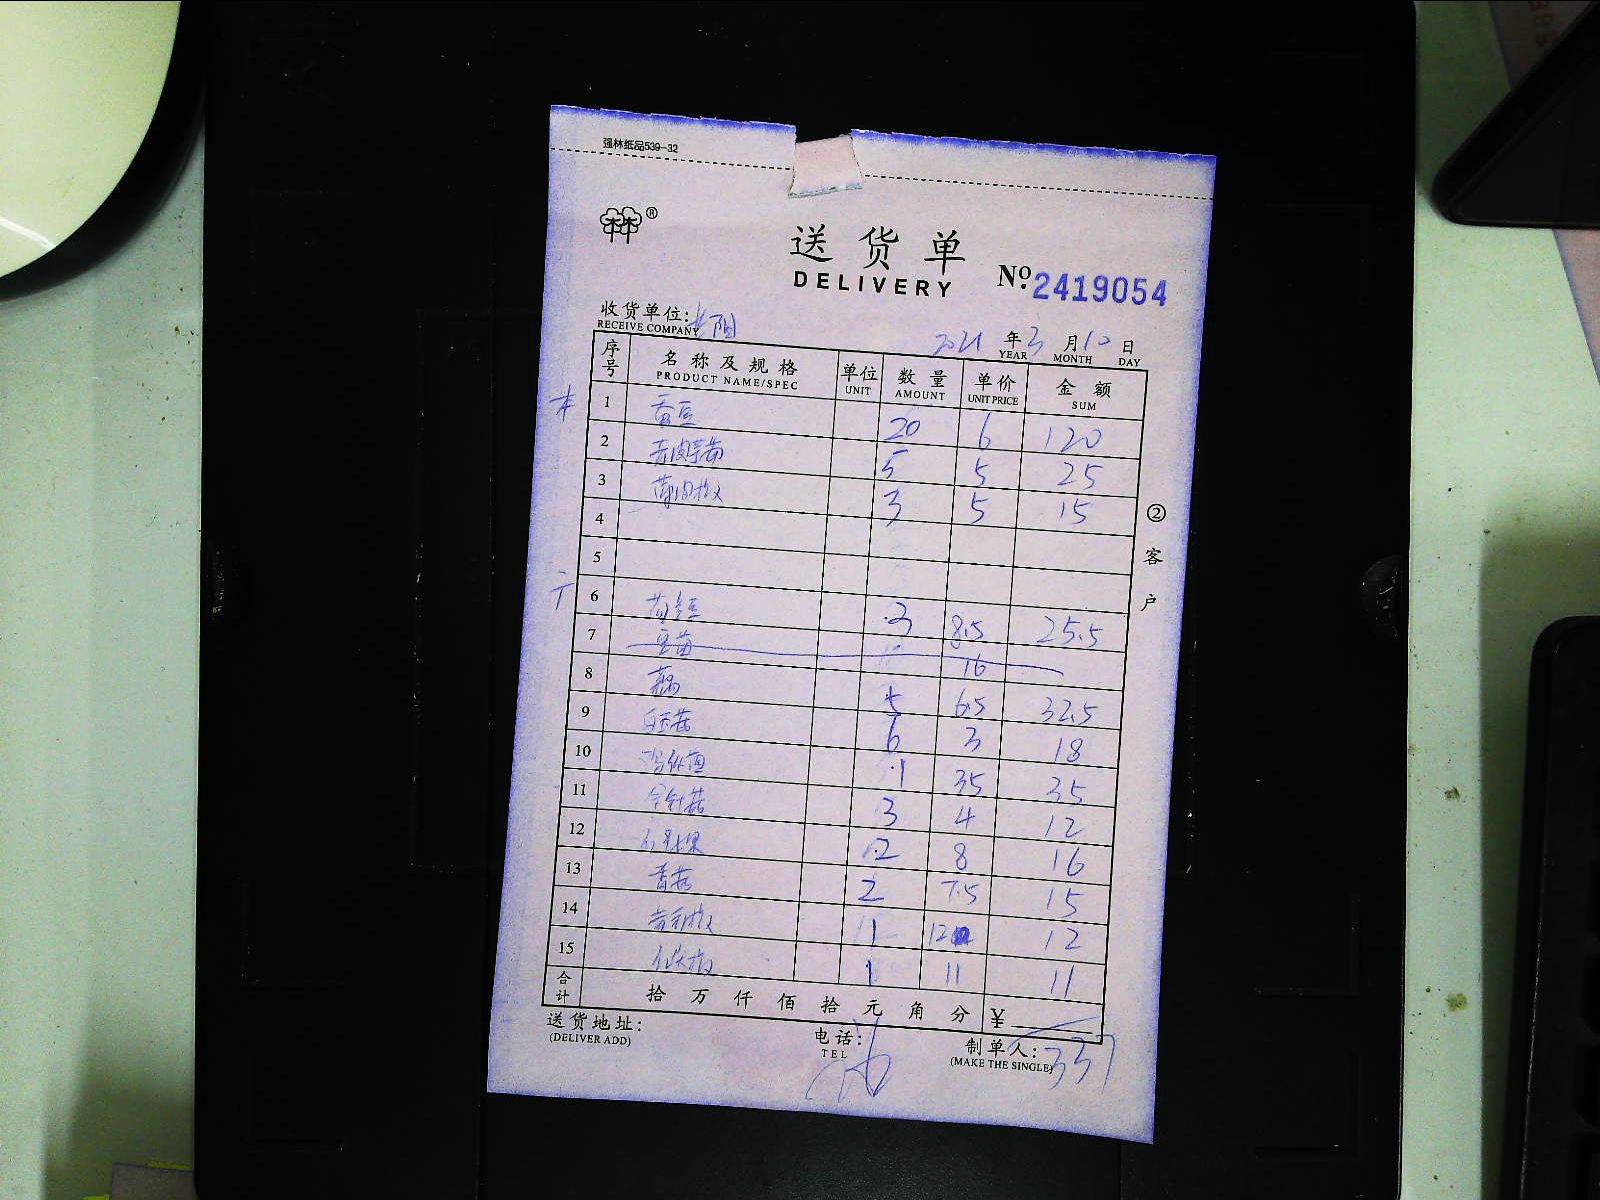 强林纸品539-32
®
送货单
DELIVERY
No. 2419054
收货单位:
RECEIVE COMPANY
2021 年 3 月 10 日
YEAR MONTH DAY
序号 名称及规格 单位 数量 单价 金额
PRODUCT NAME/SPEC UNIT AMOUNT UNIT PRICE SUM
1 蚕豆 20 6 120
2 5 5 25
3 3 5 15
4
5
6 3 8.5 25.5
7 豆苗 16
8 藕 5 6.5 32.5
9 白玉菇 6 3 18
10 1 35 35
11 金针菇 3 4 12
12 2 8 16
13 香菇 2 7.5 15
14 1 12 12
15 1 11 11
合计 拾 万 仟 佰 拾 元 角 分 ¥
337
送货地址: 电话: 制单人:
(DELIVER ADD) TEL (MAKE THE SINGLE)
② 客户